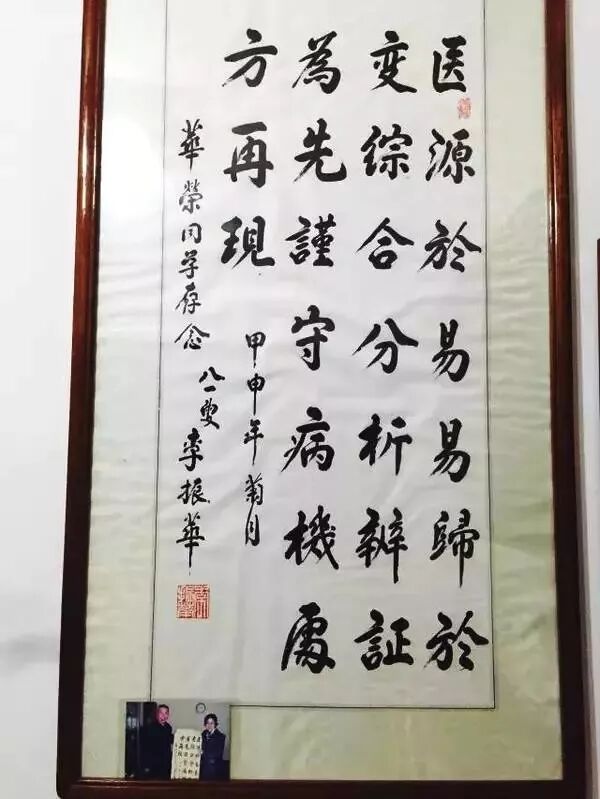 医源於易易歸於
变综合分析辨証
為先謹守病機處
方再現
甲申年菊月
華榮同学存念
八一叟 李振華